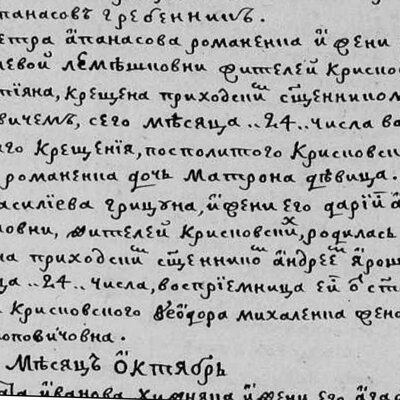 панасовъ гребенникъ.
етра апанасова романенка и жени
левой лемѣшковни жителей крисков
тїяна, крещена приходскимъ сщенникомъ
вичемъ, сего мѣсяца ..24.. числа во
го крещенїя, посполитого крисковск
романенка дочь матрона дѣвица.
асилїева грицуна, и жени его дарїи а
ловни, жителей крисковских, родилась
на приходским сщенником андреем ярош
ца ..24.. числа, воспрїемница ей
крисковского феодора михаленка жена
поповичовна.
Мѣсяцъ Октябрь
иванова и жени его агаѳ